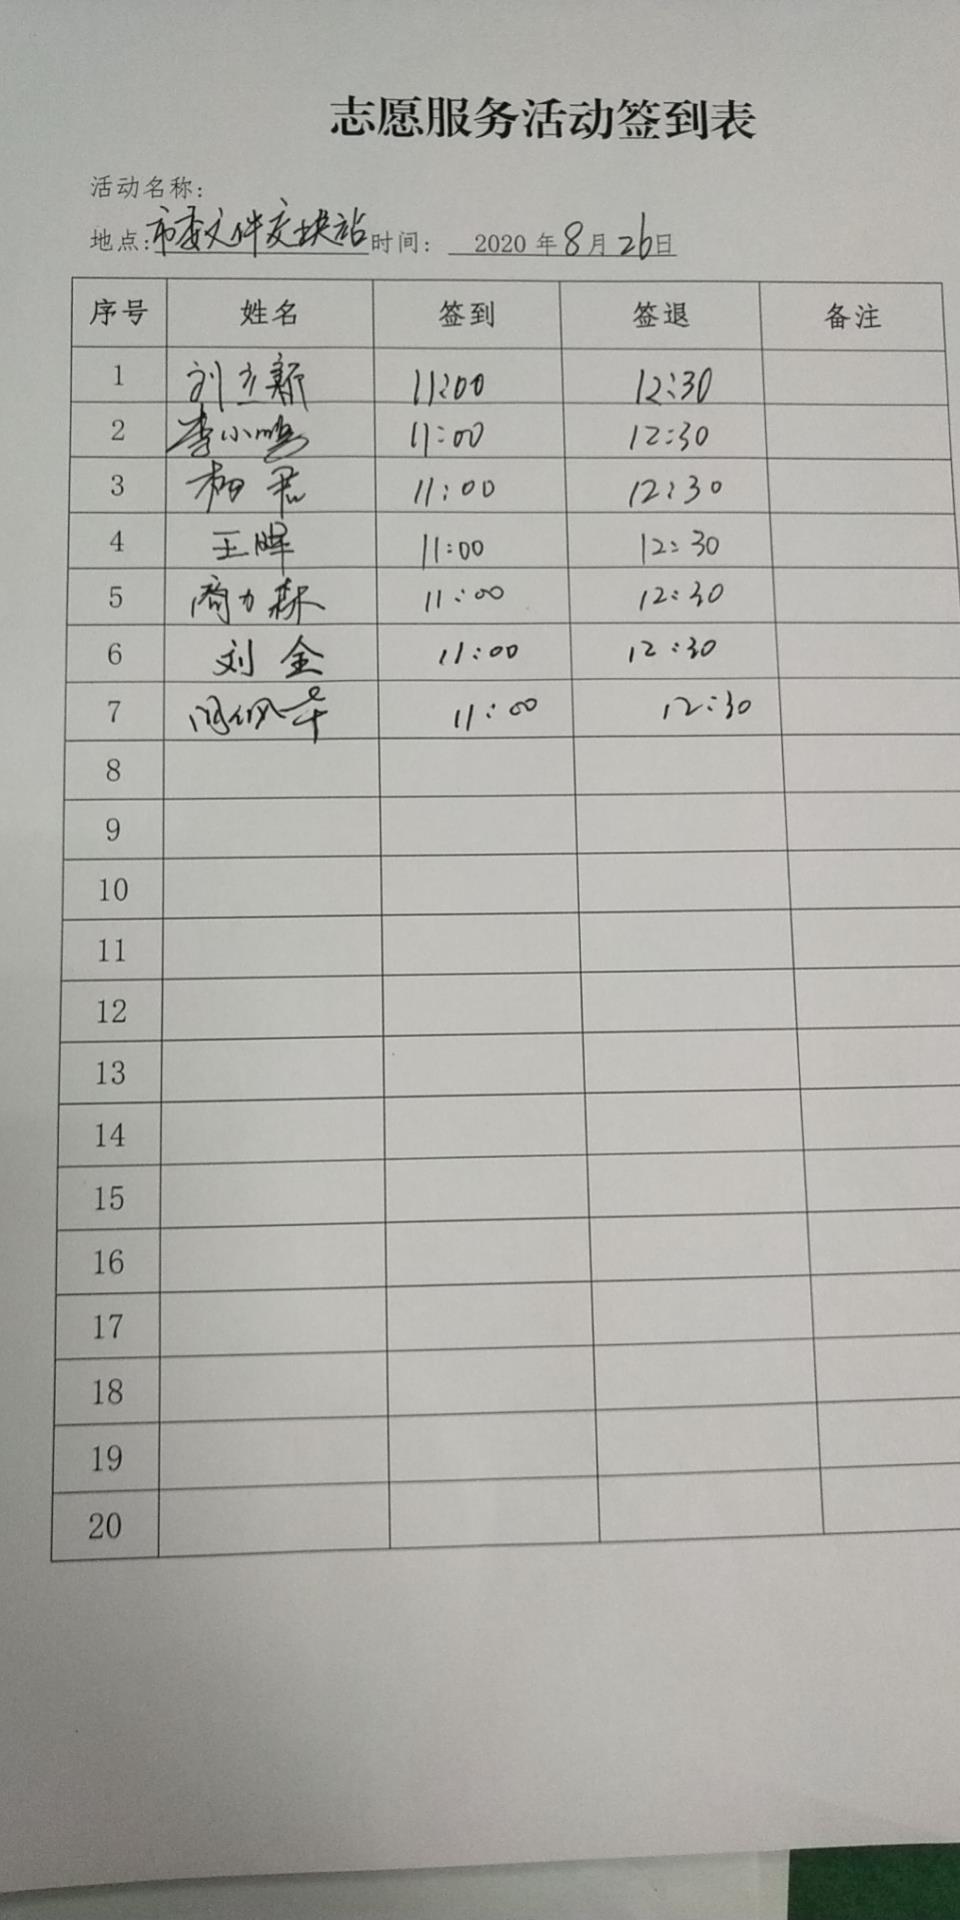 志愿服务活动签到表
活动名称:
地点:市委文件交换站时间: 2020年8月26日
序号 姓名 签到 签退 备注
1 刘立新 11:00 12:30
2 李小鹏 11:00 12:30
3 柳君 11:00 12:30
4 王晖 11:00 12:30
5 商力森 11:00 12:30
6 刘金 11:00 12:30
7 11:00 12:30
8
9
10
11
12
13
14
15
16
17
18
19
20